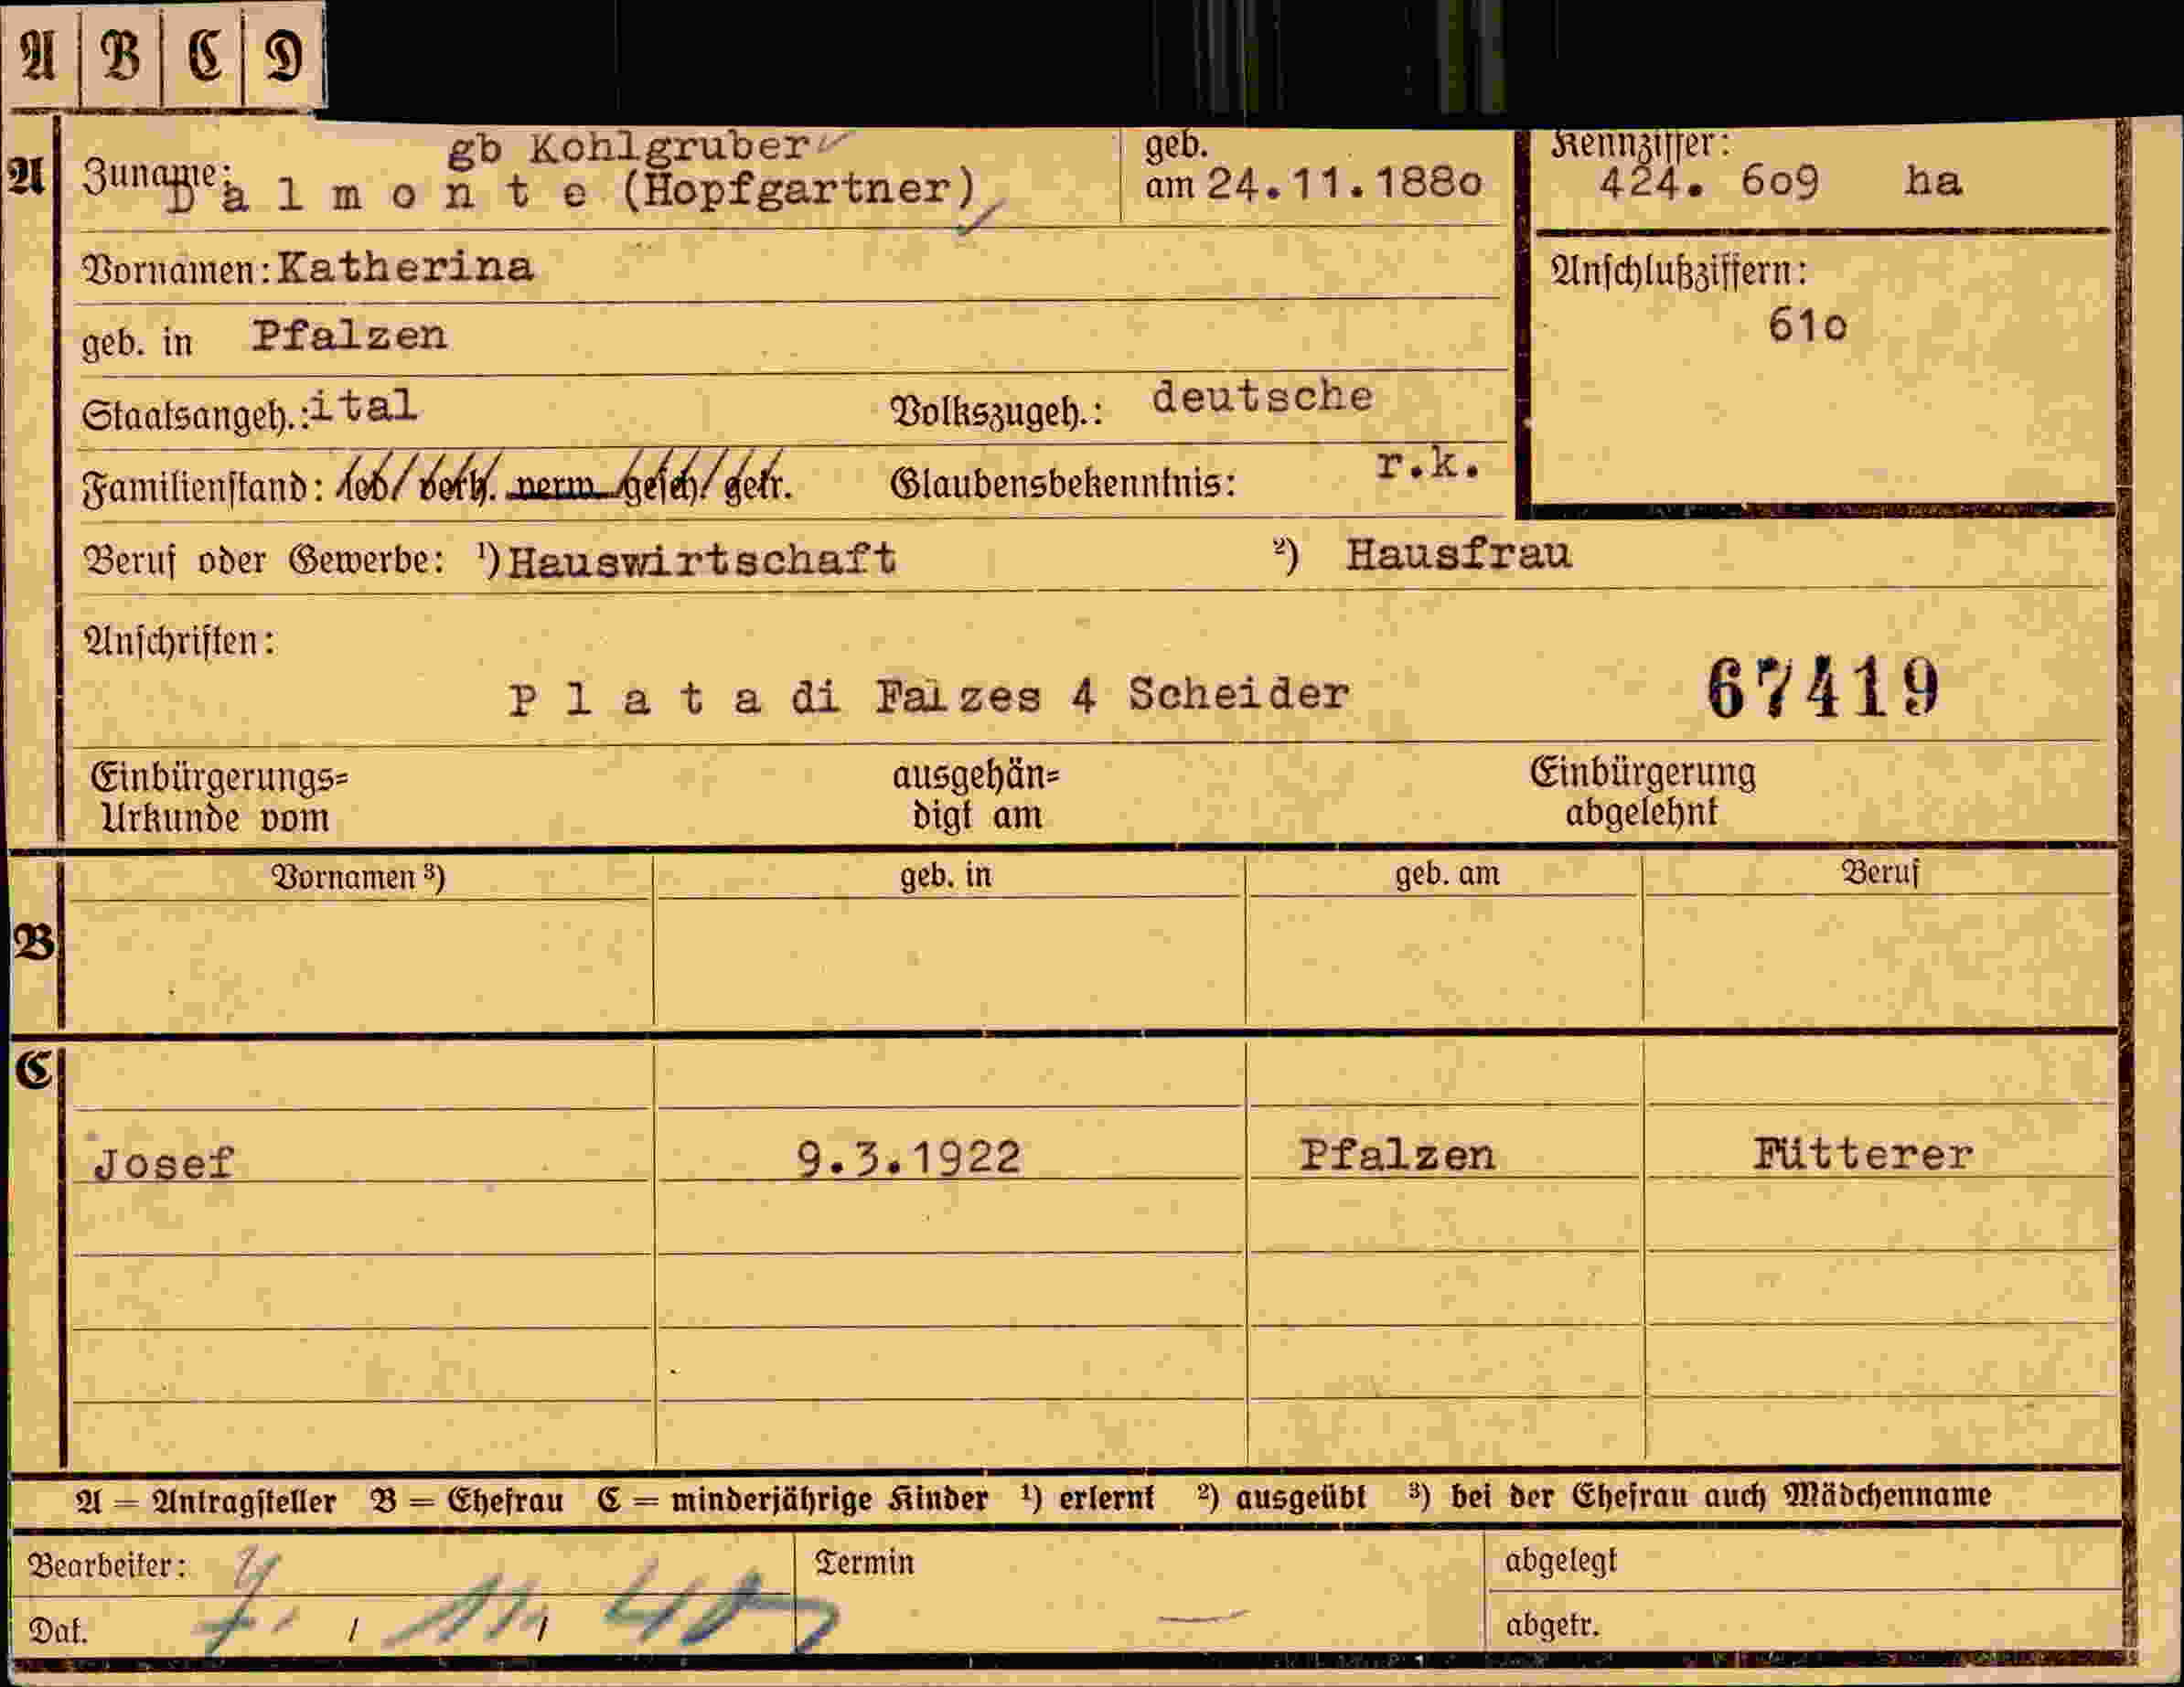 A B C D
gb Kohlgruber
A Zuname: Dalmonte (Hopfgartner) geb. am 24.11.1880 Kennziffer: 424. 609 ha
Vornamen: Katherina Anschlußziffern:
geb. in Pfalzen 610
Staatsangeh.: ital Volkszugeh.: deutsche
Familienstand: led. verh. verw. gesch. getr. Glaubensbekenntnis: r.k.
Beruf oder Gewerbe: ¹) Hauswirtschaft ²) Hausfrau
Anschriften:
P l a t a di Falzes 4 Scheider 67419
Einbürgerungs= ausgehän= Einbürgerung
Urkunde vom digt am abgelehnt
Vornamen ³) geb. in geb. am Beruf
B
C
Josef 9.3.1922 Pfalzen Fütterer
A = Antragsteller B = Ehefrau C = minderjährige Kinder ¹) erlernt ²) ausgeübt ³) bei der Ehefrau auch Mädchenname
Bearbeiter: Termin abgelegt
Dat. 7. / 11. / 40 abgetr.